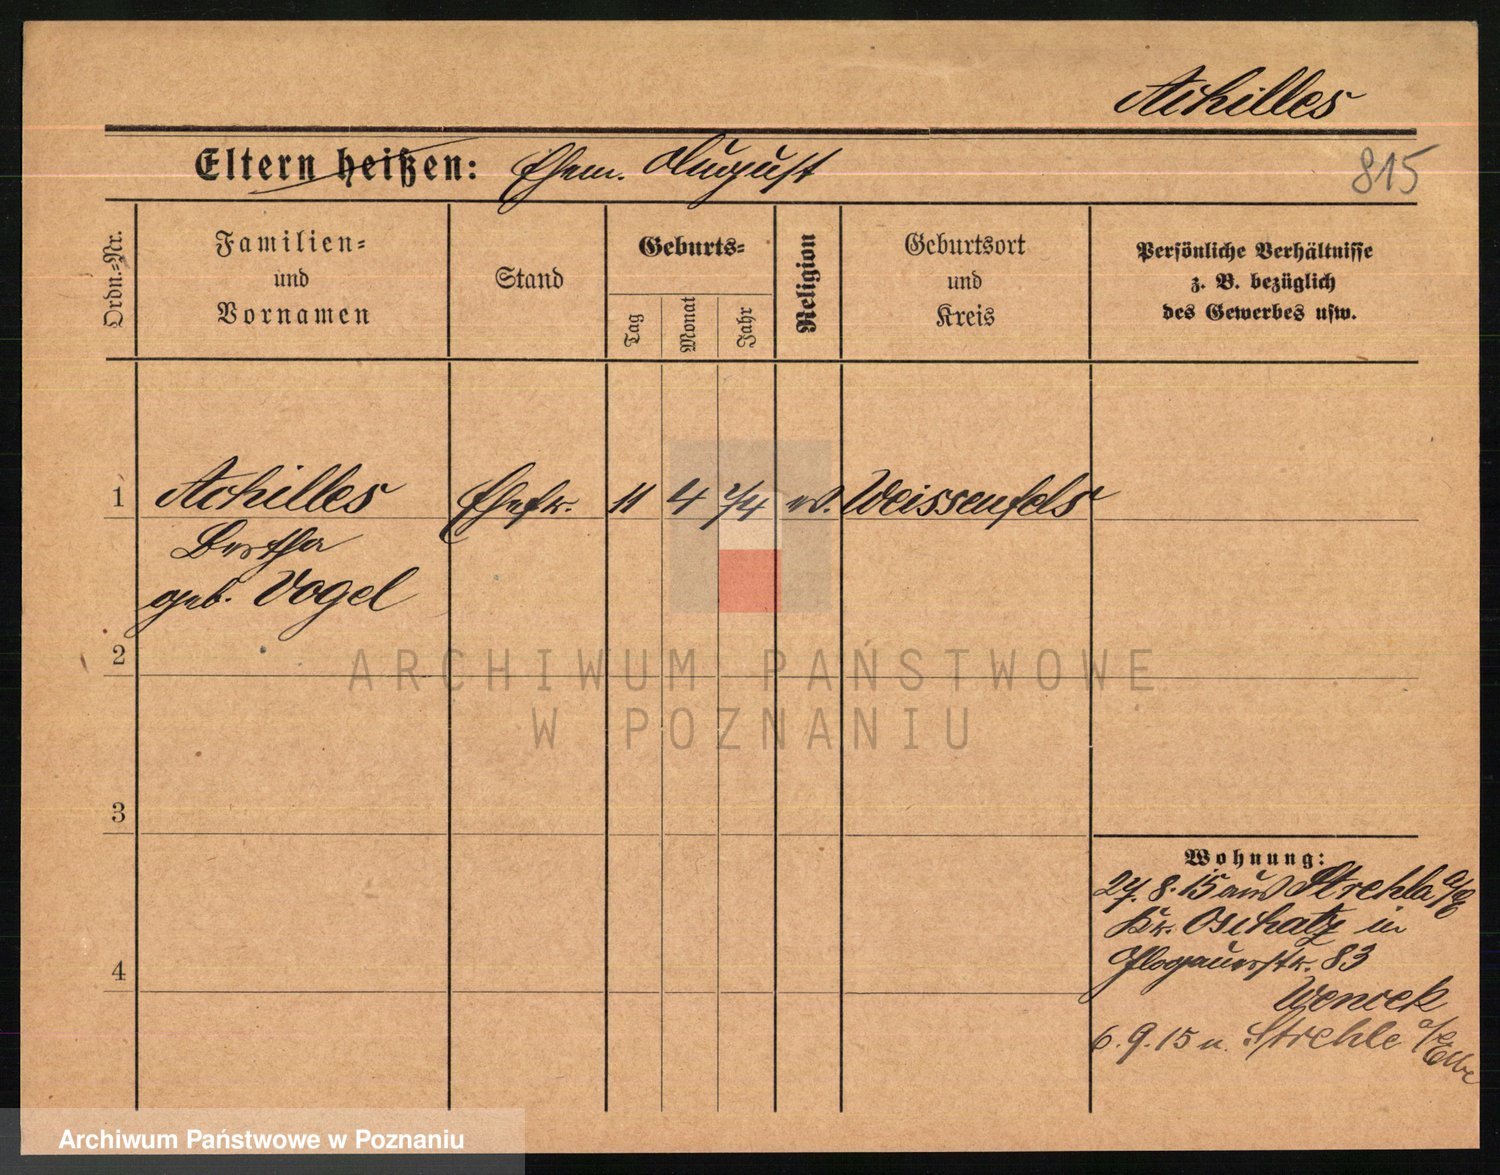 Achilles
Eltern heißen: Ehem. August
815
Ordn.-Nr.
Familien-
und
Vornamen
Stand
Geburts-
Tag
Monat
Jahr
Religion
Geburtsort
und
Kreis
Persönliche Verhältnisse
z. B. bezüglich
des Gewerbes usw.
1 Achilles Ehefr. 11 4 74 ev. Weissenfels
Bertha
geb. Vogel
2
3
4
Wohnung:
27. 8. 15 aus Strehla a/E
Kr. Oschatz in
Glogauerstr. 83
Wencek
6. 9. 15 n. Strehle a/e Elbe
ARCHIWUM PAŃSTWOWE
W POZNANIU
Archiwum Państwowe w Poznaniu